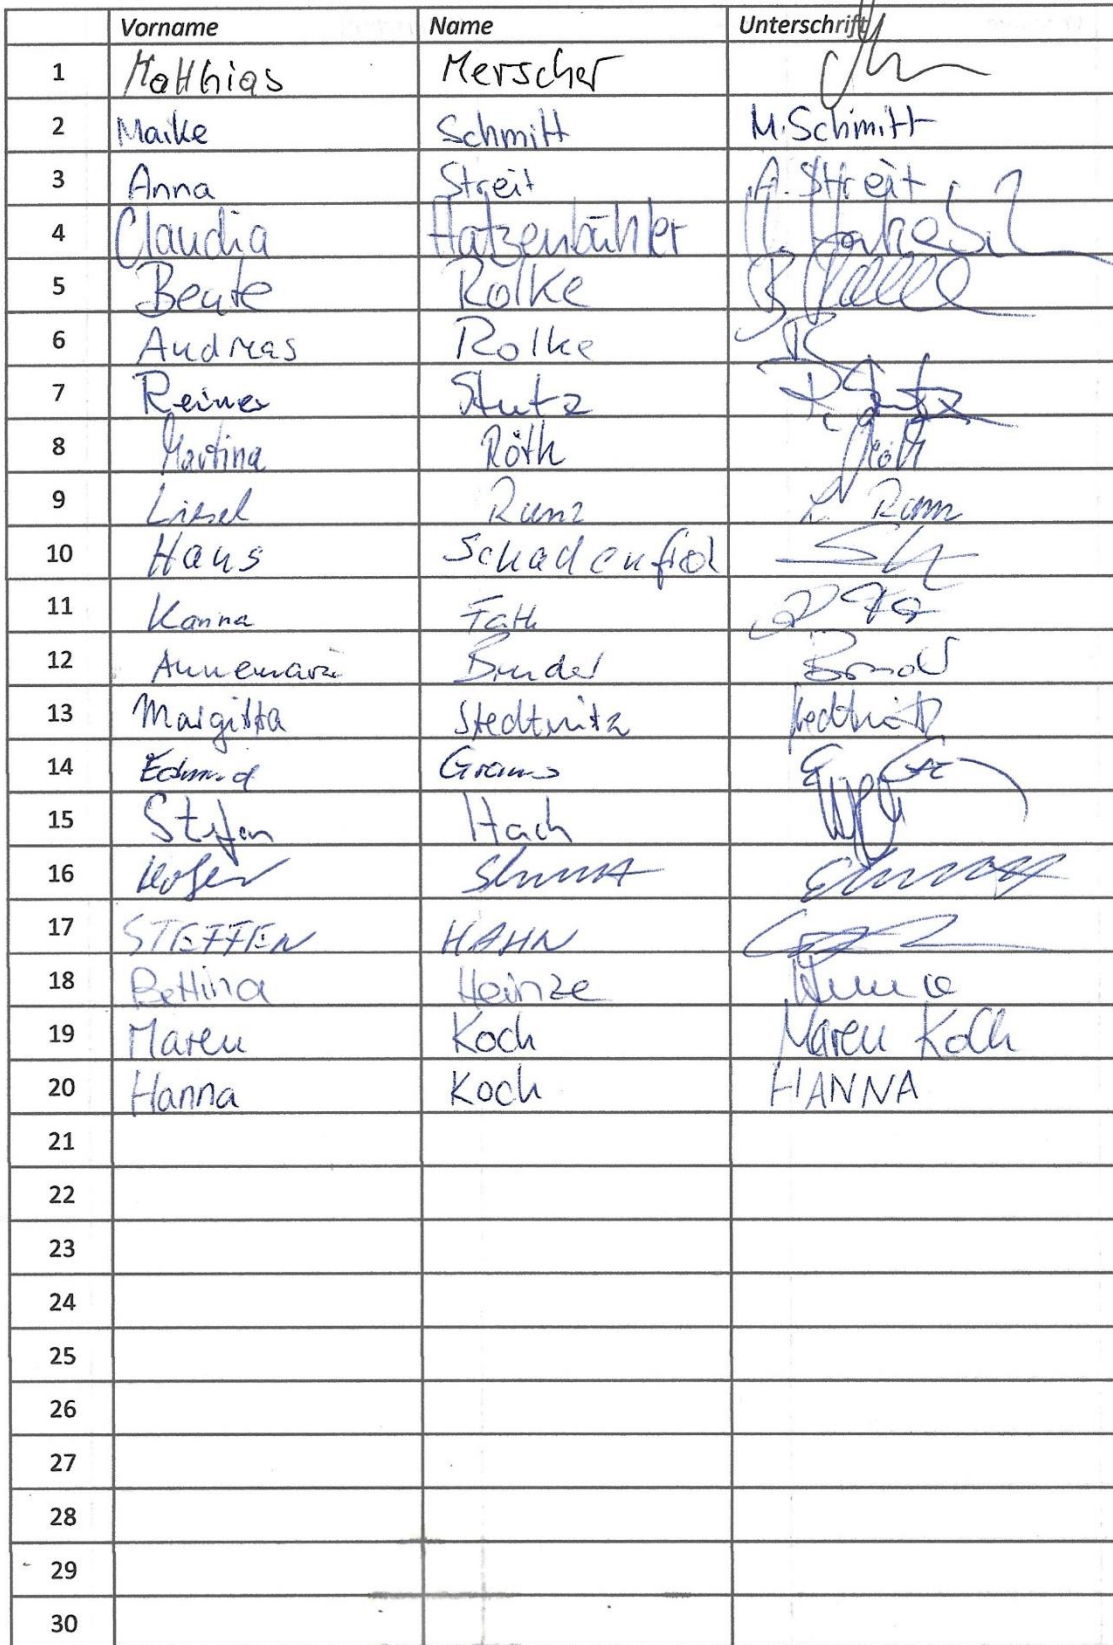 Vorname Name Unterschrift
1 Matthias Merscher
2 Maike Schmitt M. Schmitt
3 Anna Streit A. Streit
4 Claudia Hatzenbühler
5 Beate Rolke B. Rolke
6 Andreas Rolke
7 Reiner Stutz R. Stutz
8 Martina Röth Röth
9 Liesel Runz L. Runz
10 Hans
11 Fath
12 Annemarie Binder
13 Margitta Stedtnitz Stedtnitz
14 Edmund
15 Stefan Hach
16
17 STEFFEN HAHN
18 Bettina Heinze
19 Maren Koch Maren Koch
20 Hanna Koch HANNA
21
22
23
24
25
26
27
28
29
30